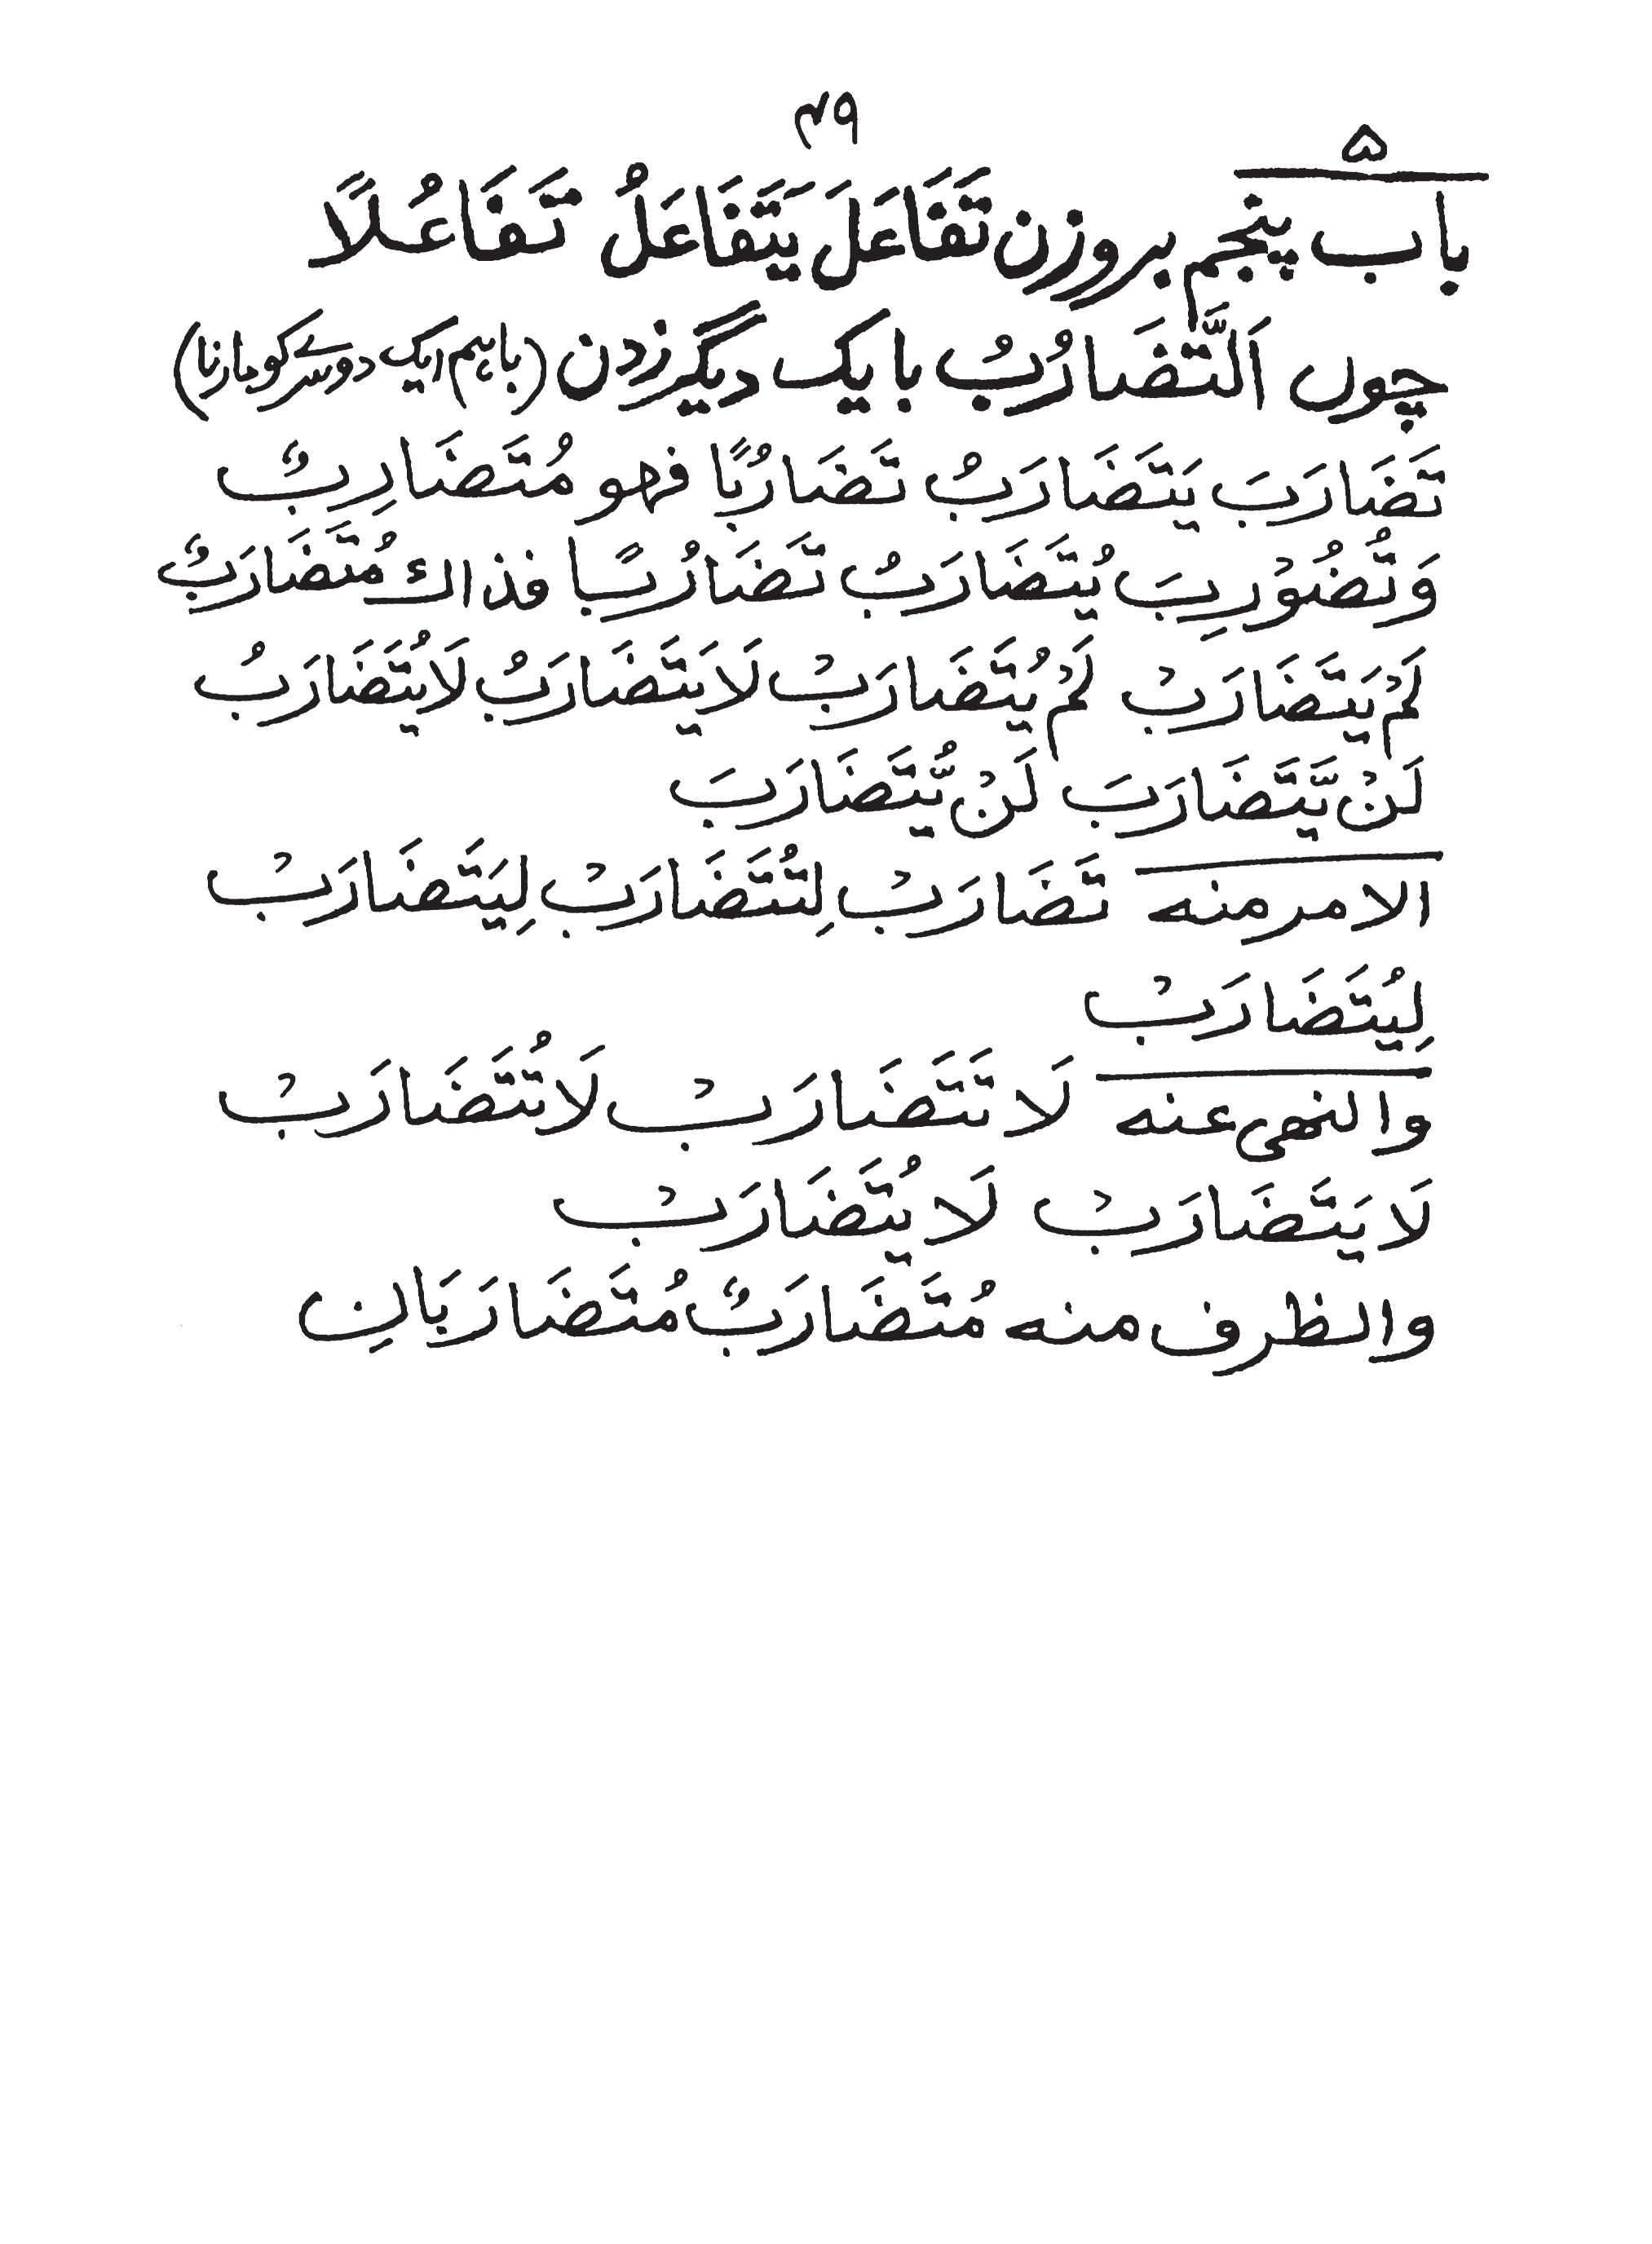 ۴۹
۵
باب پنجم بروزن تَفَاعَلَ يَتَفَاعَلُ تَفَاعُلًا
چوں اَلتَّضَارُبُ بایک دیگر زدن (باہم ایک دوسرے کو مارنا)
تَضَارَبَ يَتَضَارَبُ تَضَارُبًا فهو مُتَضَارِبٌ
وَتُضُوْرِبَ يُتَضَارَبُ تَضَارُبًا فذاك مُتَضَارَبٌ
لَمْ يَتَضَارَبْ لَمْ يُتَضَارَبْ لَا يَتَضَارَبُ لَا يُتَضَارَبُ
لَنْ يَّتَضَارَبَ لَنْ يُّتَضَارَبَ
الامر منه تَضَارَبْ لِتُتَضَارَبْ لِيَتَضَارَبْ
لِيُتَضَارَبْ
والنهى عنه لَا تَتَضَارَبْ لَا تُتَضَارَبْ
لَا يَتَضَارَبْ لَا يُتَضَارَبْ
والظرف منه مُتَضَارَبٌ مُتَضَارَبَانِ